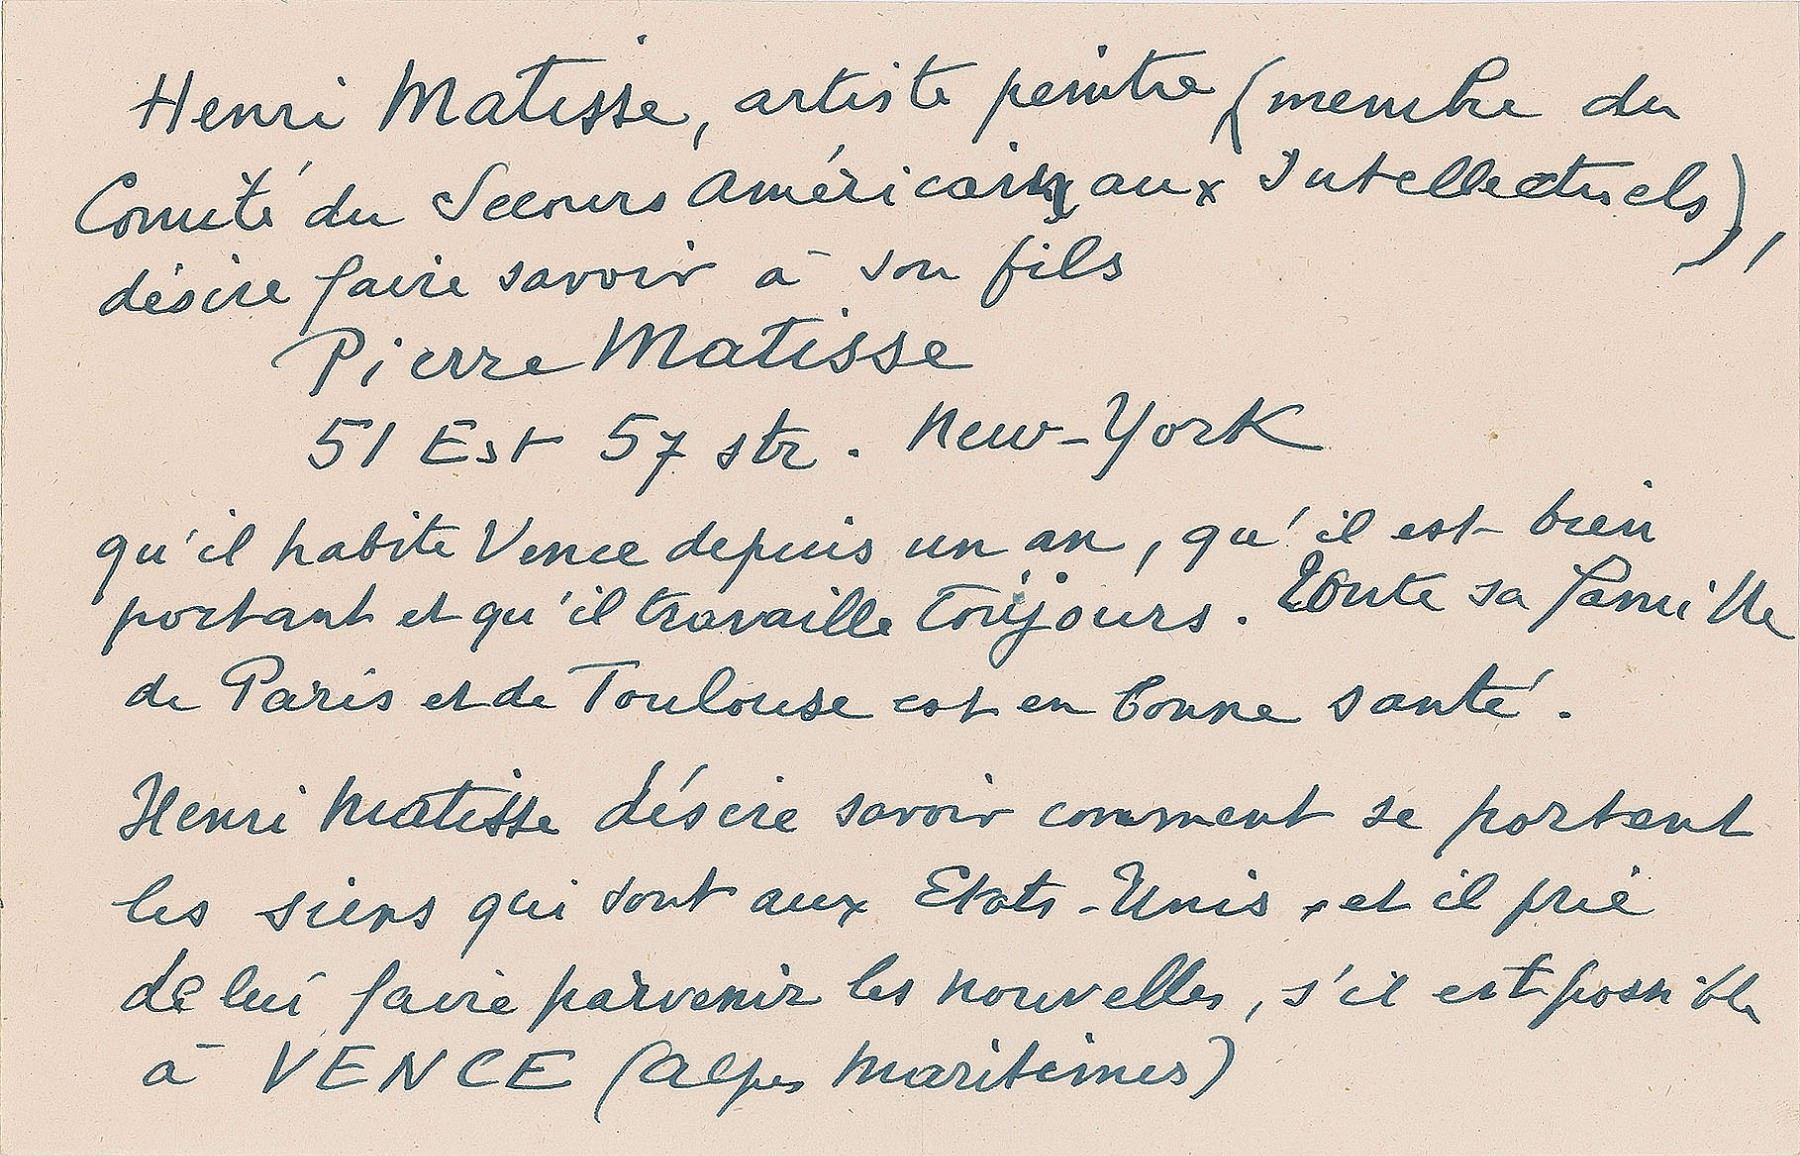 Henri Matisse, artiste peintre (membre du
Comité du Secours américain aux Intellectuels),
désire faire savoir à son fils
Pierre Matisse
51 Est 57 str. New-York
qu'il habite Vence depuis un an, qu'il est bien
portant et qu'il travaille toujours. Toute sa famille
de Paris et de Toulouse est en bonne santé.
Henri Matisse désire savoir comment se portent
les siens qui sont aux Etats-Unis, et il prie
de lui faire parvenir les nouvelles, s'il est possible
à VENCE (Alpes Maritimes)